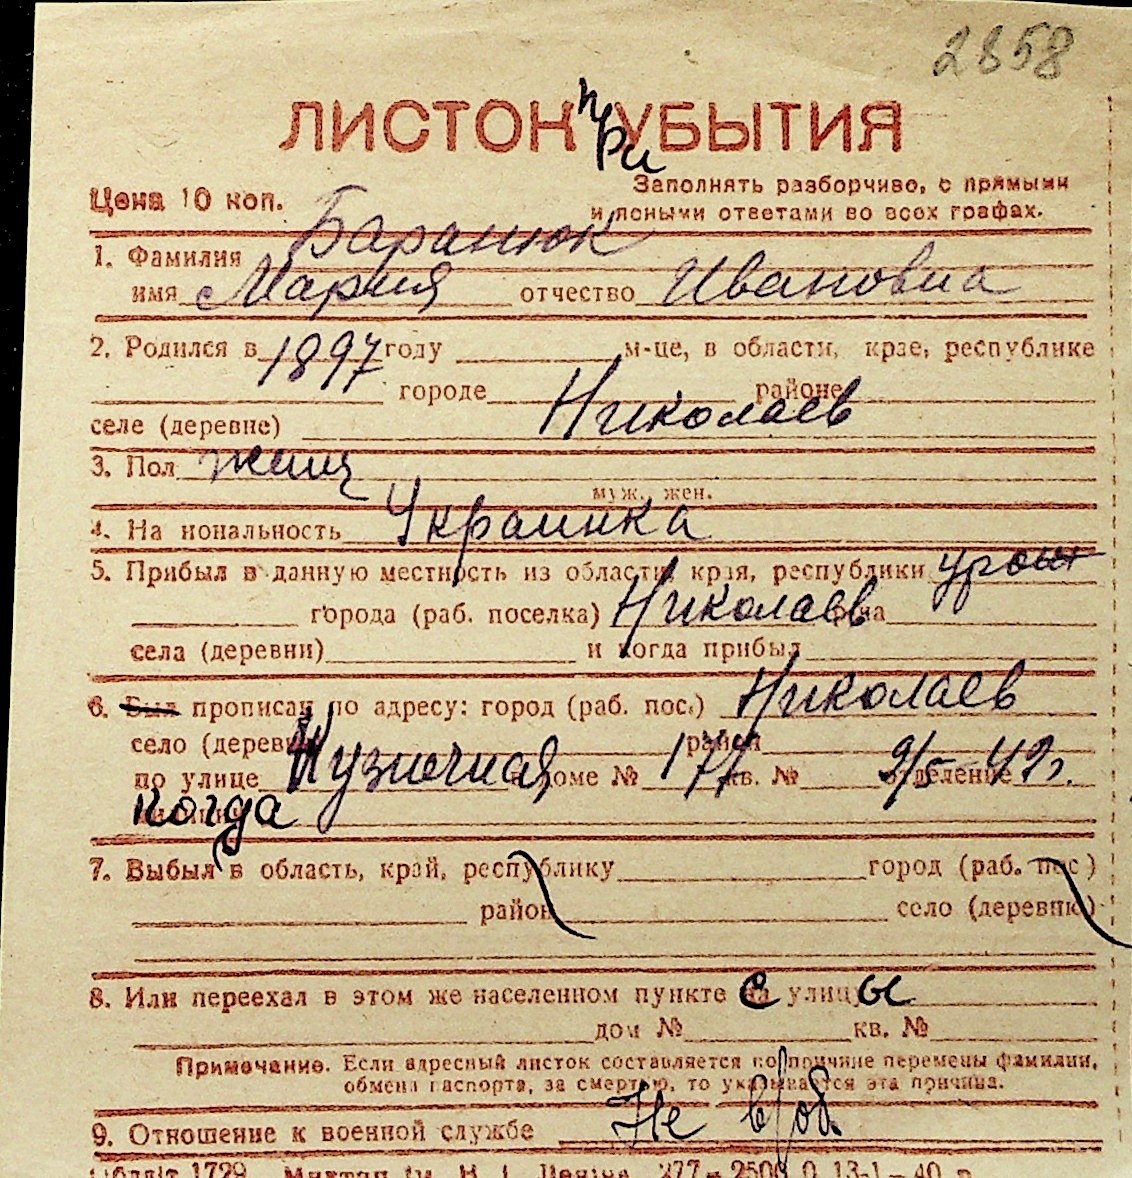 2858
ЛИСТОК при УБЫТИЯ
Цена 10 коп.
Заполнять разборчиво, с прямыми
и ясными ответами во всех графах.
1. Фамилия Баранюк
имя Мария отчество Ивановна
2. Родился в 1897 году м-це, в области, крае, республике
городе районе
селе (деревне) Николаев
3. Пол женщ
муж. жен.
4. На иональность Украинка
5. Прибыл в данную местность из области, края, республики урож
города (раб. поселка) Николаев
села (деревни) и когда прибыл
6. Был прописан по адресу: город (раб. пос.) Николаев
село (деревня) район
по улице Кузнечная в доме № 177 кв. № отделение 9/5-42г.
когда
7. Выбыл в область, край, республику город (раб. пос)
район село (деревню)
8. Или переехал в этом же населенном пункте с на улицу ы
дом № кв. №
Примечание. Если адресный листок составляется по причине перемены фамилии,
обмена паспорта, за смертью, то указывается эта причина.
9. Отношение к военной службе Не в/об.
Обллiт 1729 Ленiна 277 – 2500 0 13-1 – 40 р